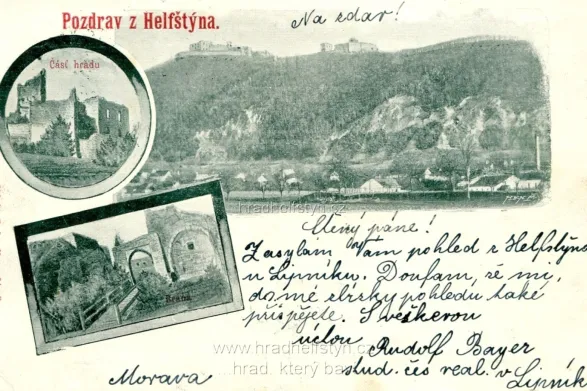 Pozdrav z Helfštýna.
Na zdar!
Část hradu
hradhelfstyn.cz
Ctěný páne!
Zasýlám Vám pohled z Helfštýna
u Lipníku. Doufám, že mi,
do mé sbírky pohledu také
přispějete. S veškerou
úctou Rudolf Bayer
stud. čes real. v Lipník
Brána
http://www.hradhelfstyn.cz
hrad, který ba
Morava